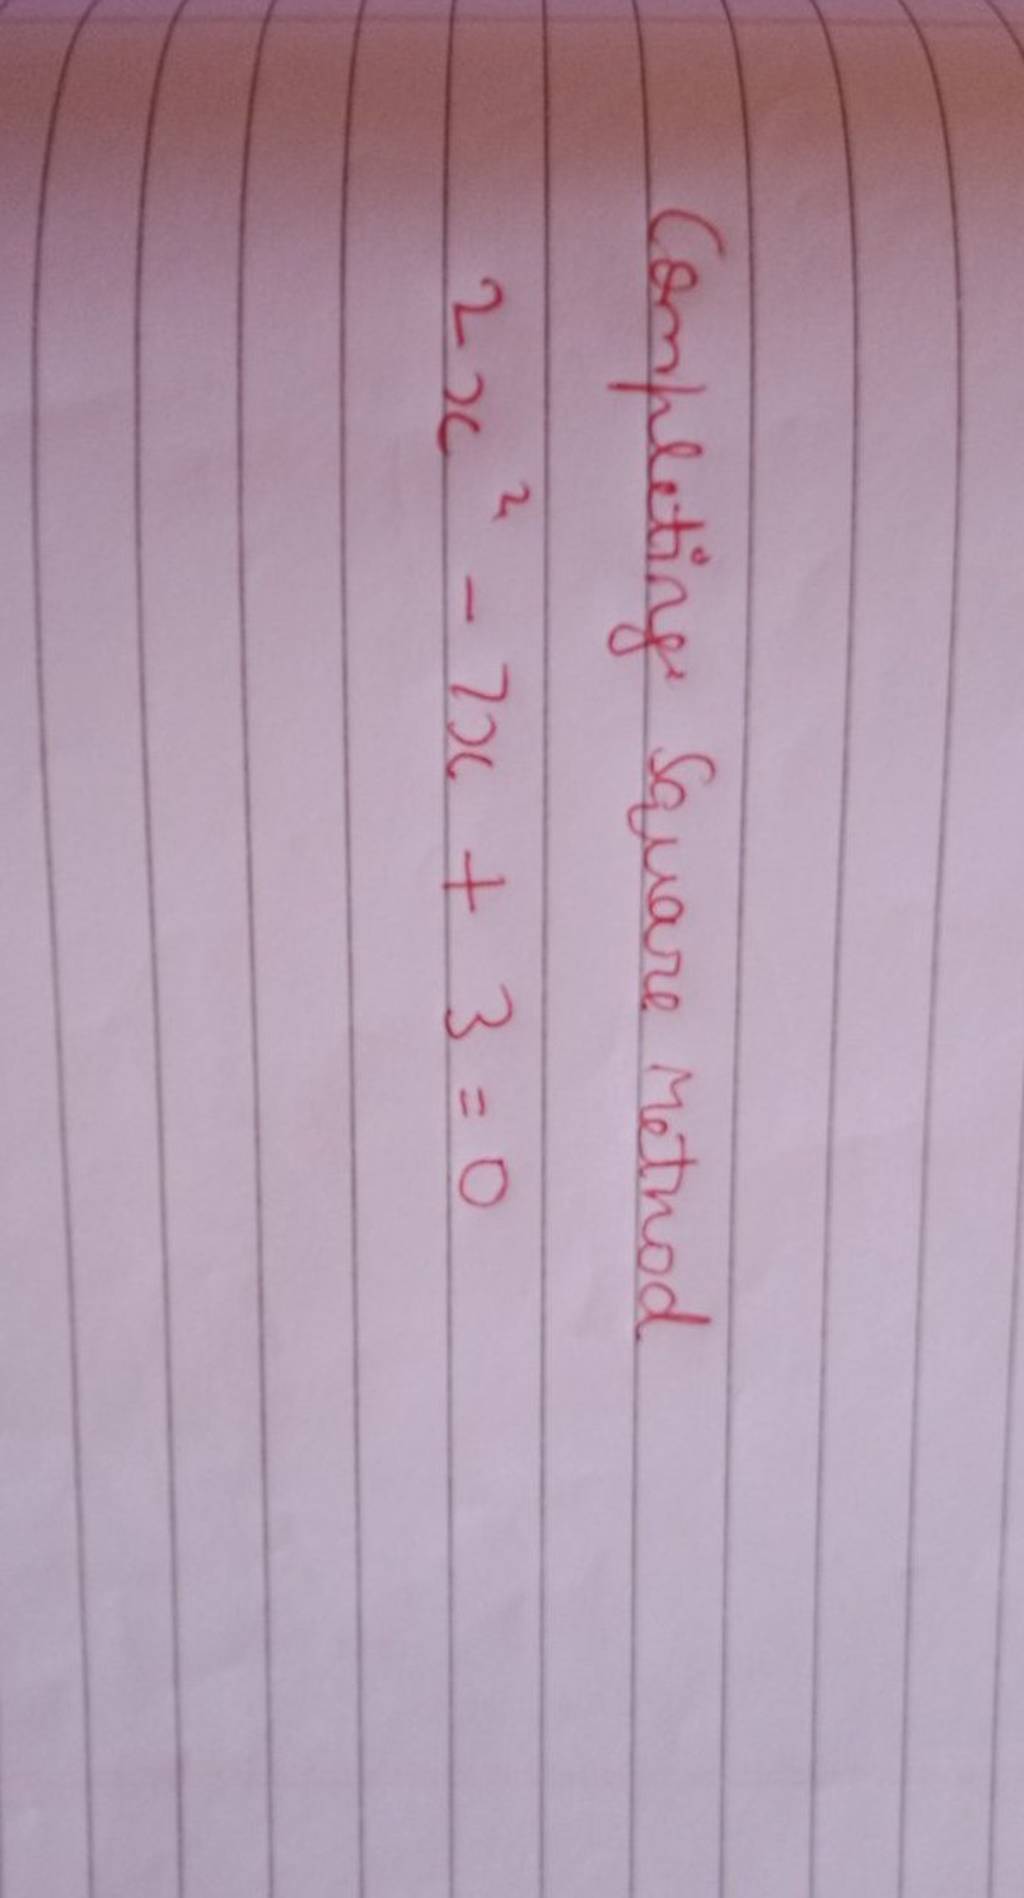 Completing Square Method
2x² - 7x + 3 = 0